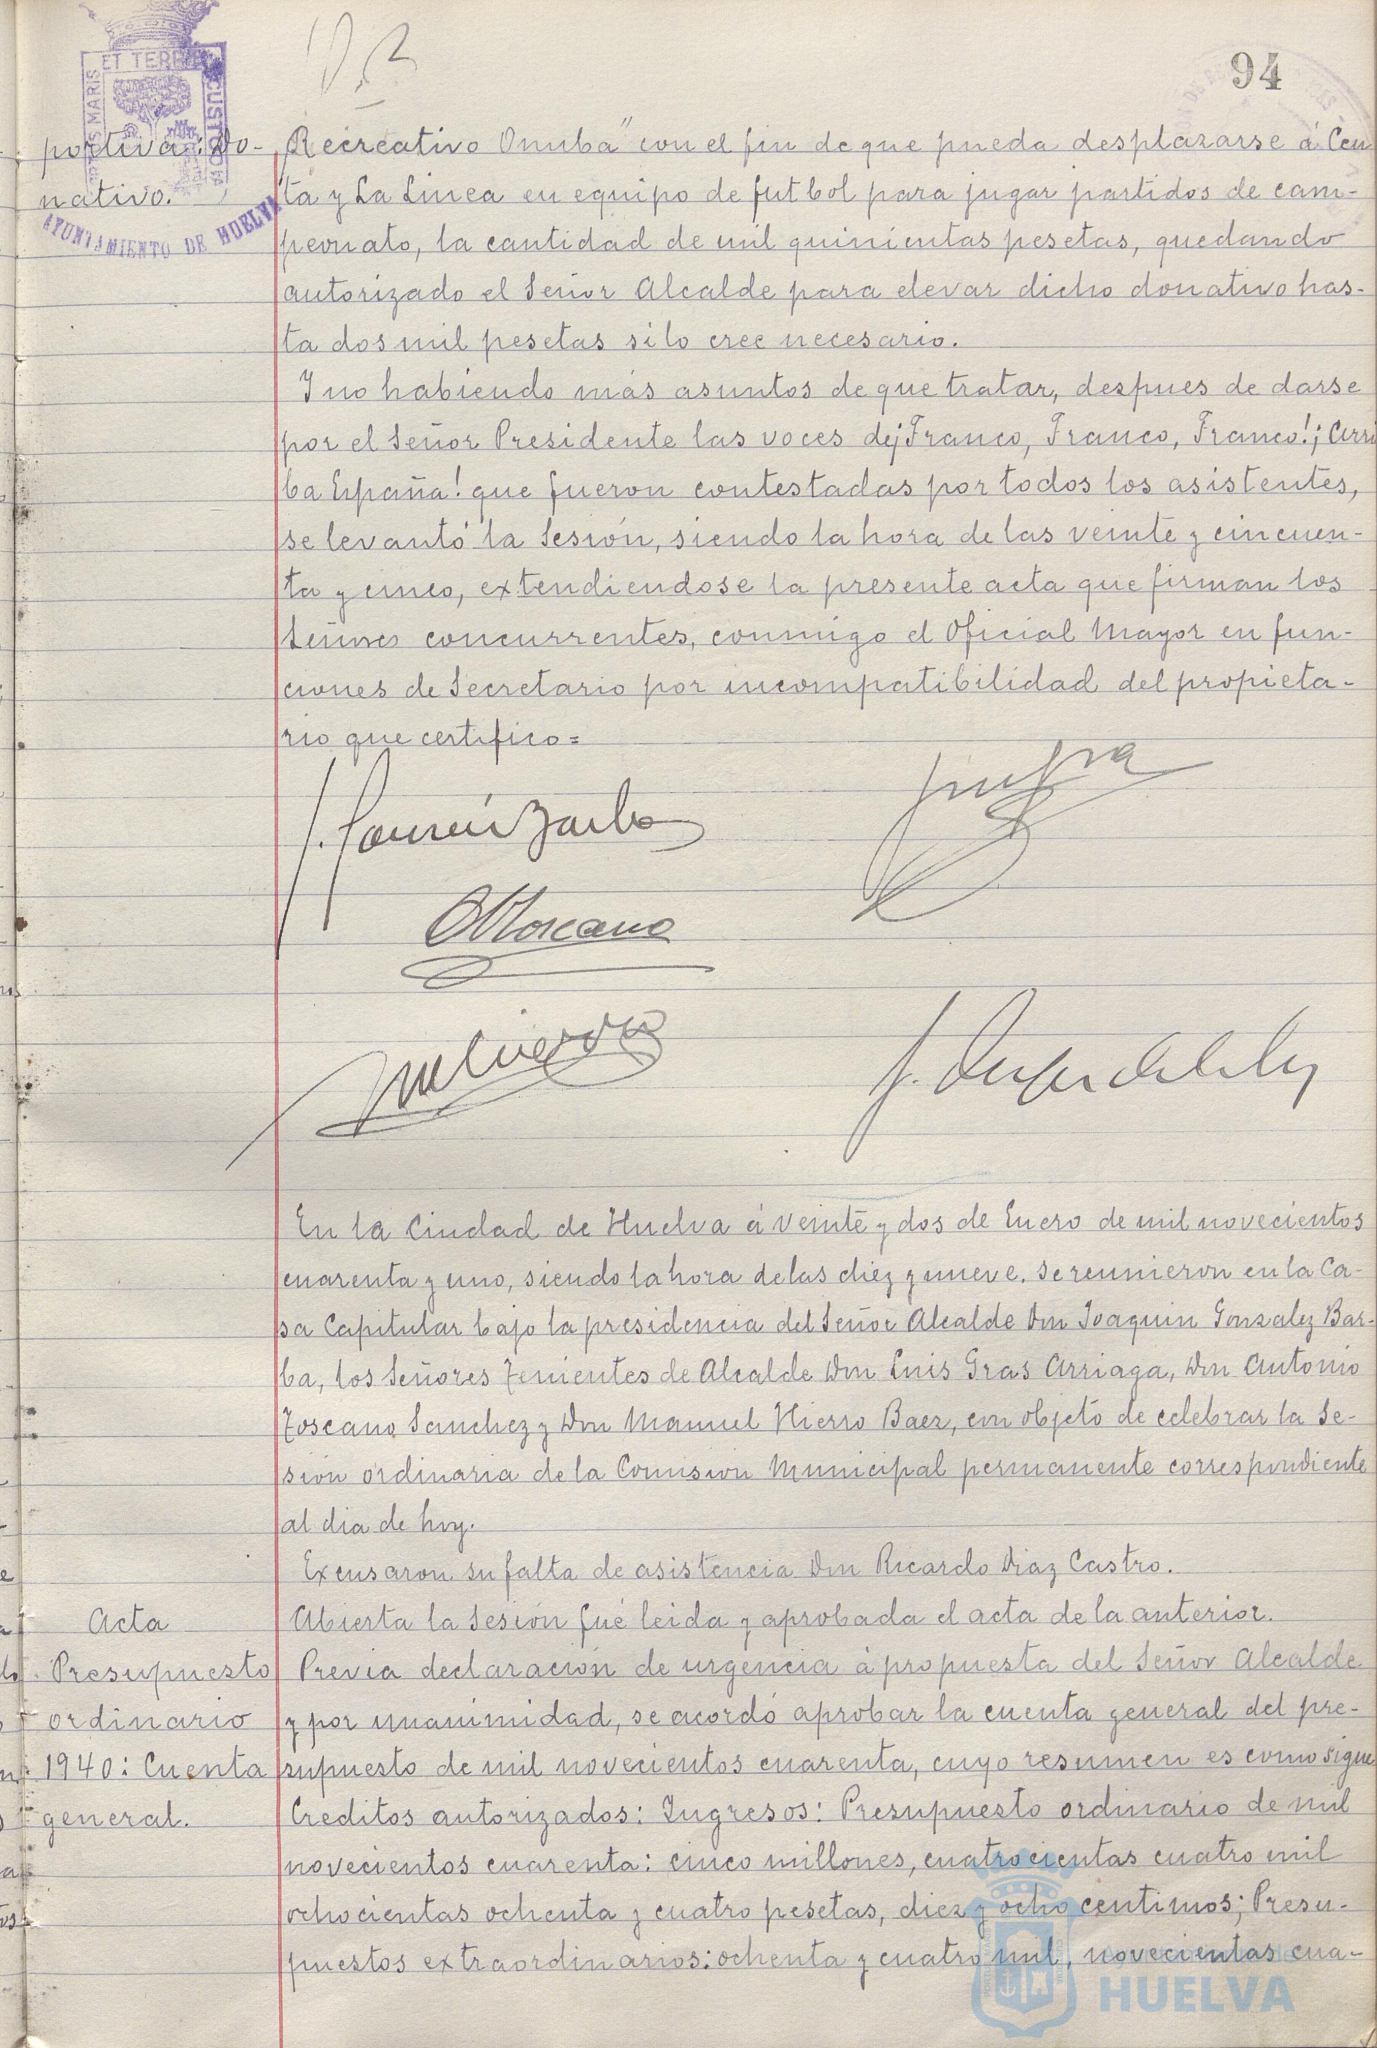 94
ET TERRE CUSTODIA
AYUNTAMIENTO DE HUELVA
portiva: Do-
nativo.
Recreativo Onuba" con el fin de que pueda desplazarse á Ceu-
ta y La Linea en equipo de futbol para jugar partidos de cam-
peonato, la cantidad de mil quinientas pesetas, quedando
autorizado el Señor Alcalde para elevar dicho donativo has-
ta dos mil pesetas si lo cree necesario.
Y no habiendo más asuntos de que tratar, despues de darse
por el Señor Presidente las voces de ¡Franco, Franco, Franco!; Arri
ba España! que fueron contestadas por todos los asistentes,
se levantó la Sesión, siendo la hora de las veinte y cincuen-
ta y cinco, extendiendose la presente acta que firman los
Señores concurrentes, conmigo el Oficial Mayor en fun-
ciones de Secretario por incompatibilidad del propieta-
rio que certifico=
OToscano
En la Ciudad de Huelva á veinte y dos de Enero de mil novecientos
cuarenta y uno, siendo la hora de las diez y nueve. se reunieron en la Ca-
sa Capitular bajo la presidencia del Señor Alcalde Don Joaquin Gonzalez Bar-
ba, los Señores Tenientes de Alcalde Don Luis Gras Arriaga, Don Antonio
Toscano Sanchez y Don Manuel Hierro Baez, con objeto de celebrar la Se-
sión ordinaria de la Comision Municipal permanente correspondiente
al dia de hoy.
Excusaron su falta de asistencia Don Ricardo Diaz Castro.
Acta
Abierta la Sesión fué leida y aprobada el acta de la anterior.
Presupuesto
ordinario
1940: Cuenta
general.
Previa declaración de urgencia á propuesta del Señor Alcalde
y por unanimidad, se acordó aprobar la cuenta general del pre-
supuesto de mil novecientos cuarenta, cuyo resumen es como sigue
Creditos autorizados: Ingresos: Presupuesto ordinario de mil
novecientos cuarenta: cinco millones, cuatrocientas cuatro mil
ochocientas ochenta y cuatro pesetas, diez y ocho centimos; Presu-
puestos extraordinarios: ochenta y cuatro mil, novecientas cua-
HUELVA